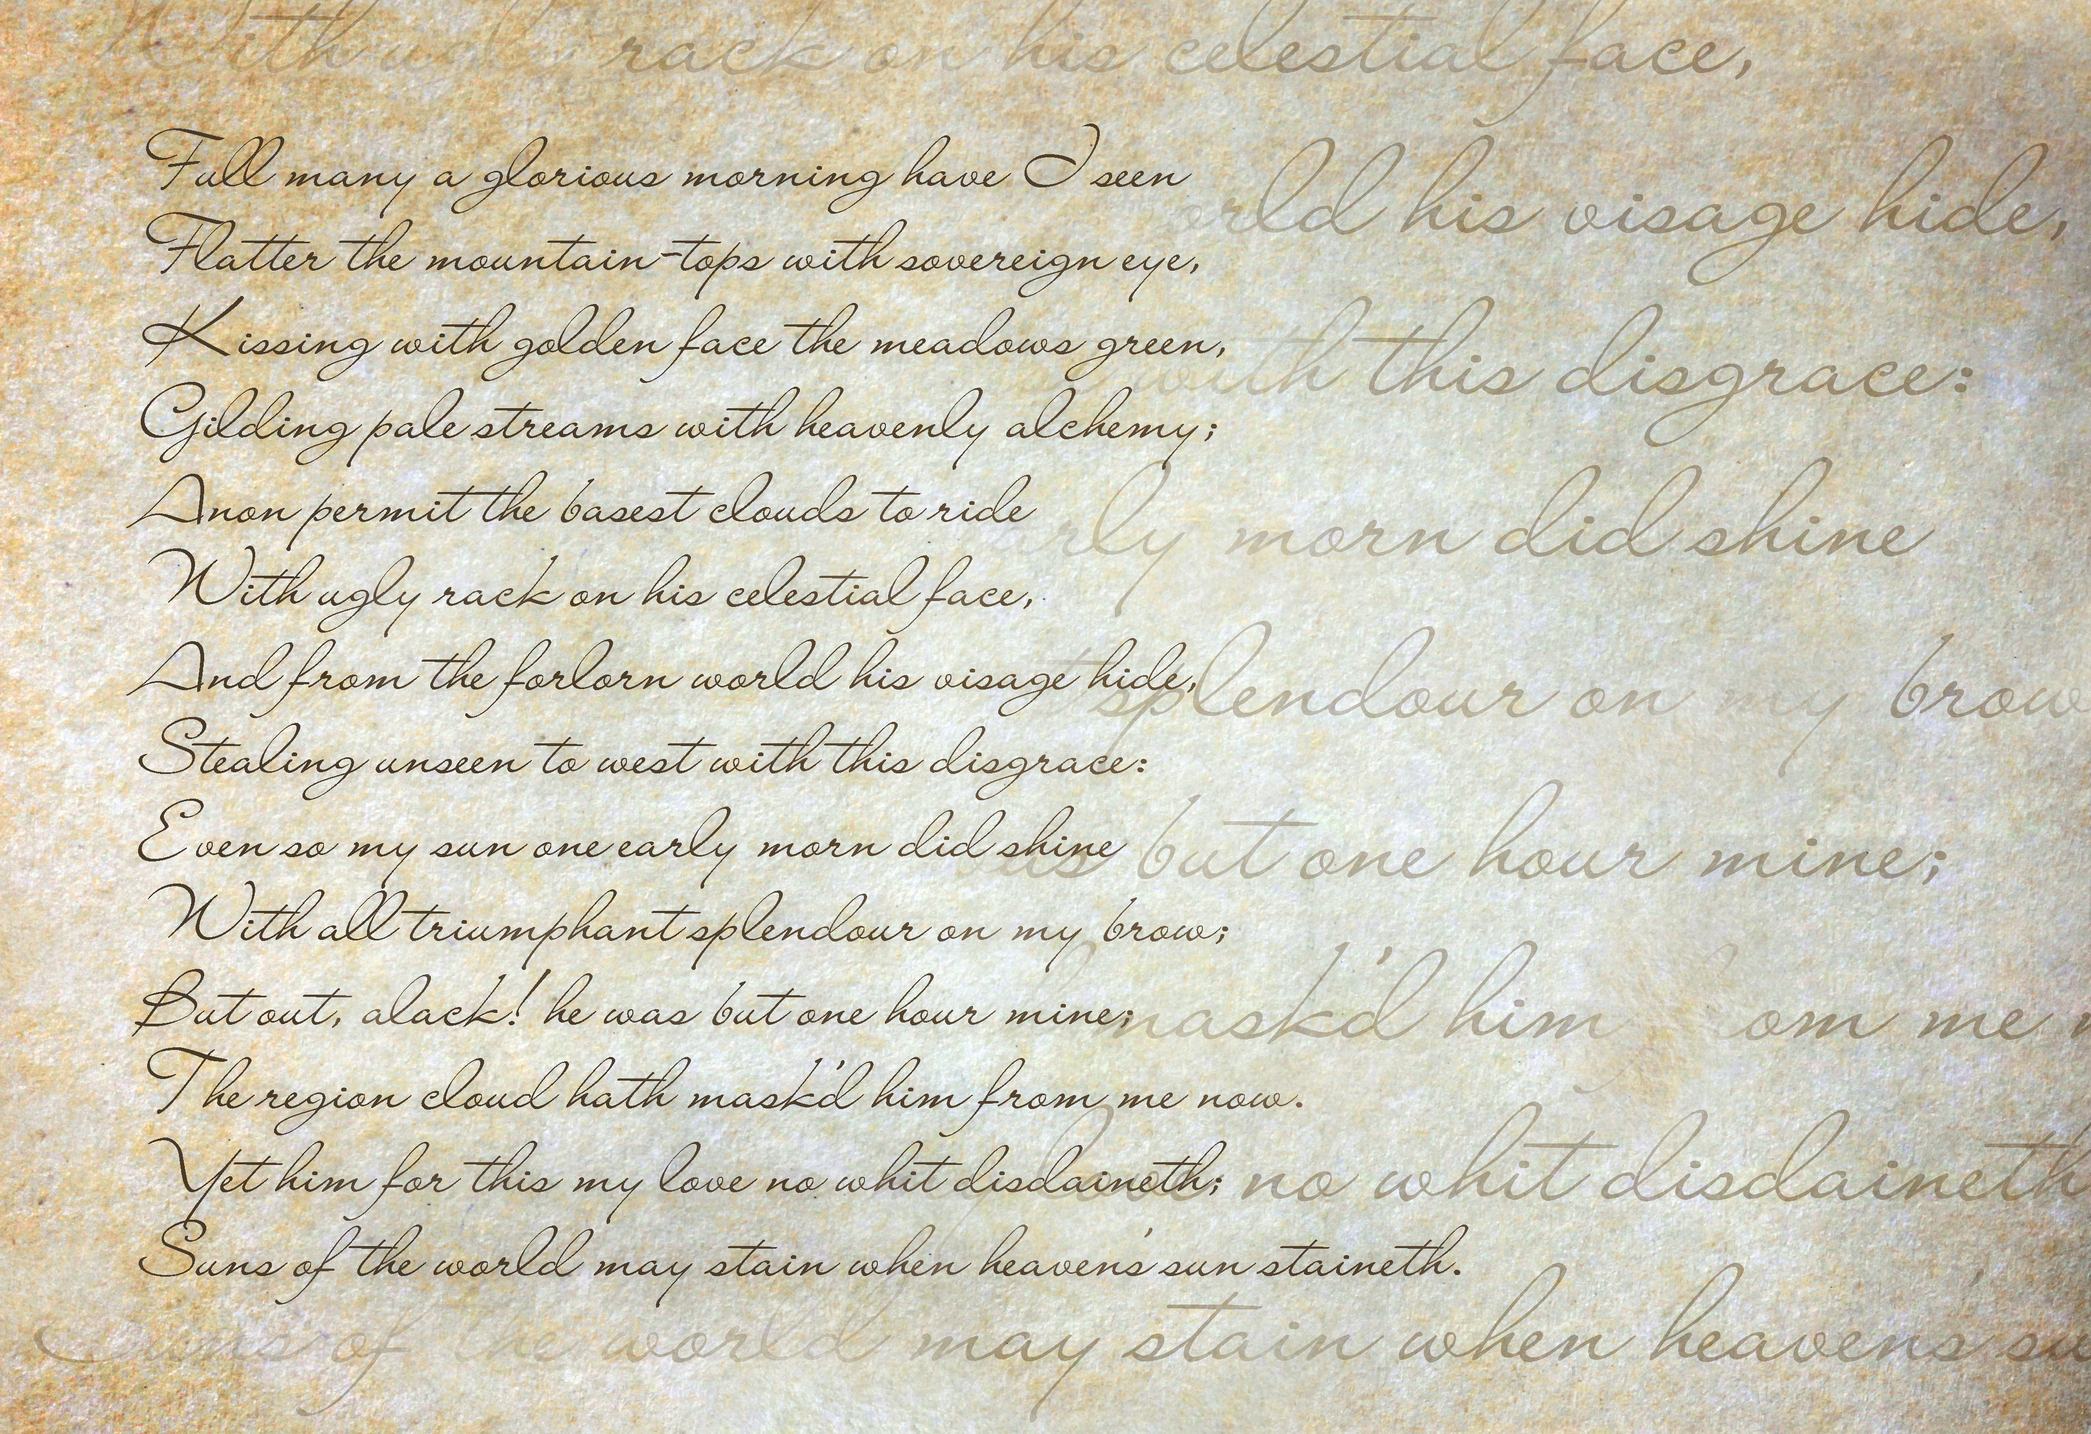 With ugly rack on his celestial face,
Full many a glorious morning have I seen
Flatter the mountain-tops with sovereign eye,
Kissing with golden face the meadows green,
Gilding pale streams with heavenly alchemy;
Anon permit the basest clouds to ride
With ugly rack on his celestial face,
And from the forlorn world his visage hide,
Stealing unseen to west with this disgrace:
Even so my sun one early morn did shine
With all triumphant splendour on my brow;
But out, alack! he was but one hour mine;
The region cloud hath mask'd him from me now.
Yet him for this my love no whit disdaineth;
Suns of the world may stain when heaven's sun staineth.
his visage hide,
with this disgrace:
morn did shine
splendour on my brow
but one hour mine;
mask'd him me
no whit disdaineth
Suns of the world may stain when heaven's